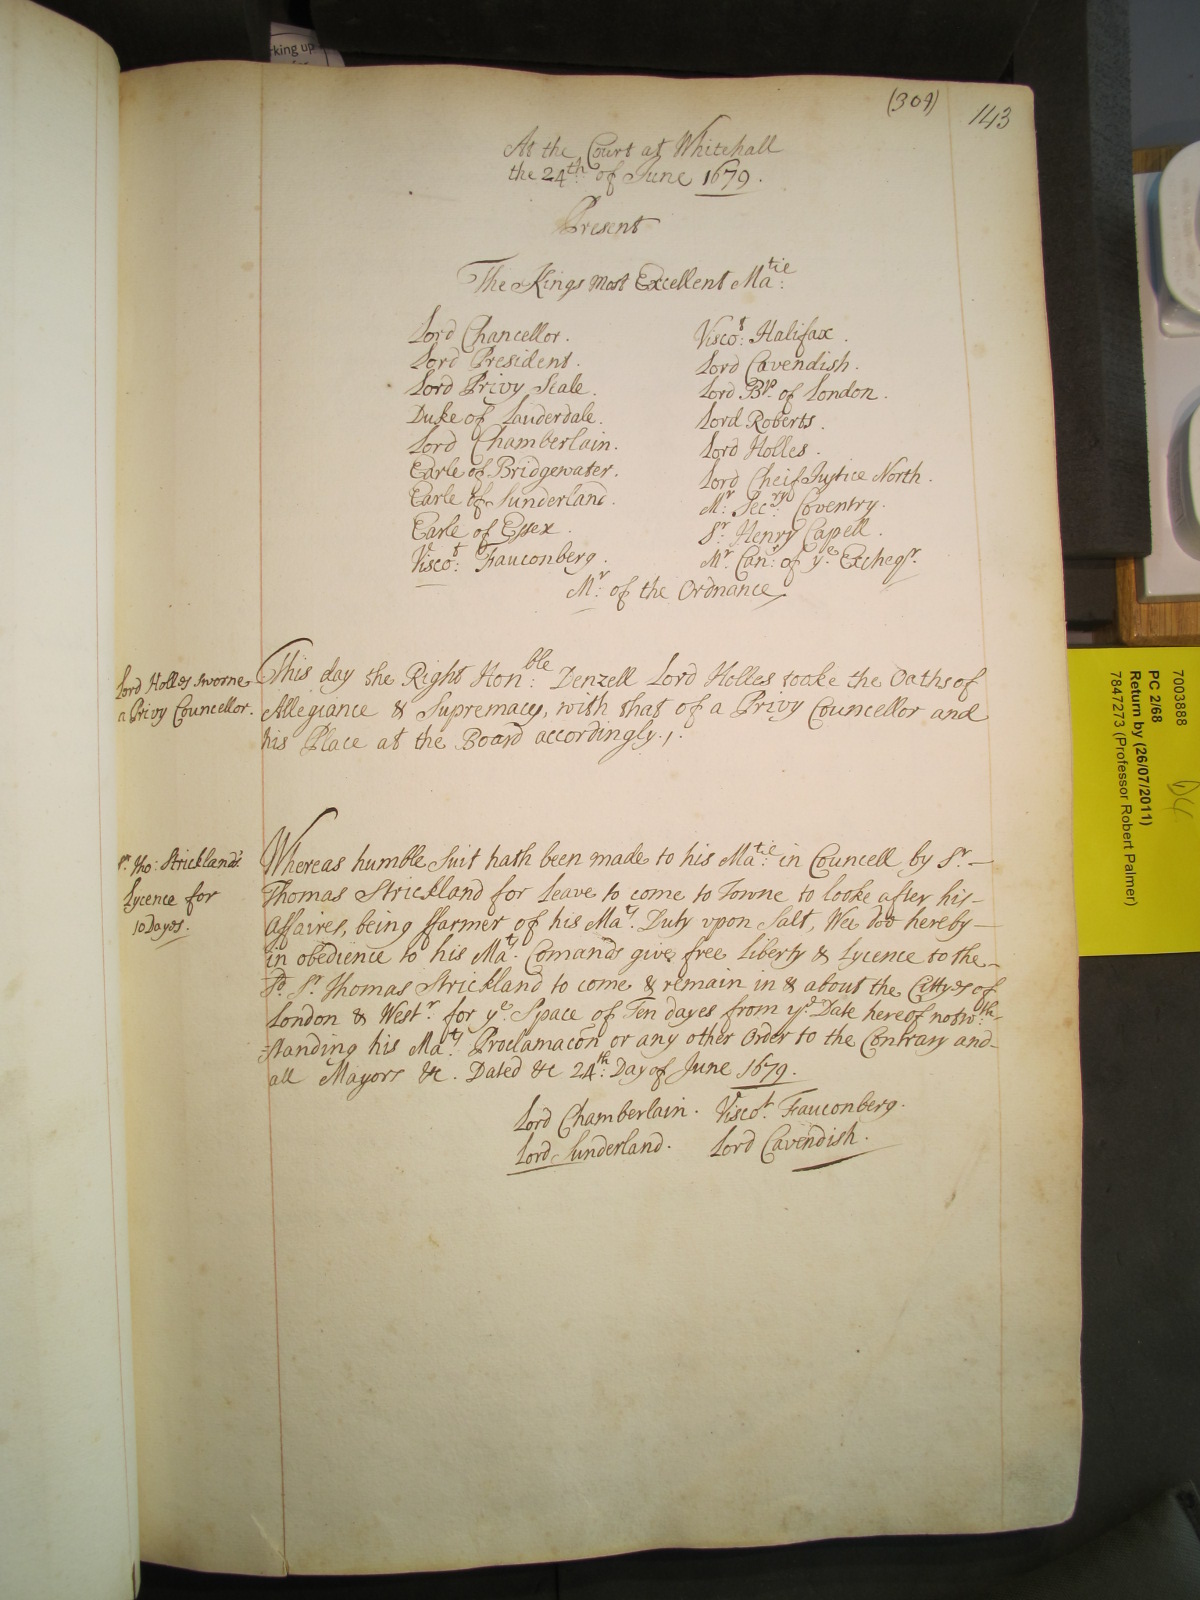 rking up
(304)
143
At the Court at Whitehall
the 24th of June 1679.
Present
The Kings Most Excellent Ma:tie
Lord Chancellor.
Lord President.
Lord Privy Seale.
Duke of Lauderdale.
Lord Chamberlain.
Earle of Bridgewater.
Earle of Sunderland.
Earle of Essex.
Visco:t Fauconberg.
Visco:t Halifax.
Lord Cavendish.
Lord Bp. of London.
Lord Roberts.
Lord Holles.
Lord Cheif Justice North.
Mr: Sec:ry Coventry.
Sr: Henry Capell.
Mr: Can:r of ye: Excheqr.
Mr: of the Ordnance
Lord Holles sworne
a Privy Councellor.
This day the Right Hon:ble Denzell Lord Holles tooke the Oaths of
Allegiance & Supremacy, with that of a Privy Councellor and
his Place at the Board accordingly.,.
Sr. Tho: Stricklands
Lycence for
10 Dayes.
Whereas humble Suit hath been made to his Ma:tie in Councell by Sr. —
Thomas Strickland for Leave to come to Towne to looke after his –
Affaires, being ffarmer of his Ma:ty Duty vpon Salt, Wee doo hereby —
in obedience to his Ma:ty Comands give free Liberty & Lycence to the –
Sd. Sr. Thomas Strickland to come & remain in & about the Cittyes of
London & Westr. for ye. Space of Ten dayes from ye. Date hereof notw:th-
=standing his Ma:ty Proclamacon or any other Order to the Contrary and –
all Mayors &c. Dated &c 24th: Day of June 1679.
Lord Chamberlain. Visco:t Fauconberg.
Lord Sunderland. Lord Cavendish.
7003888
PC 2/68
Return by (26/07/2011)
7847273 (Professor Robert Palmer)